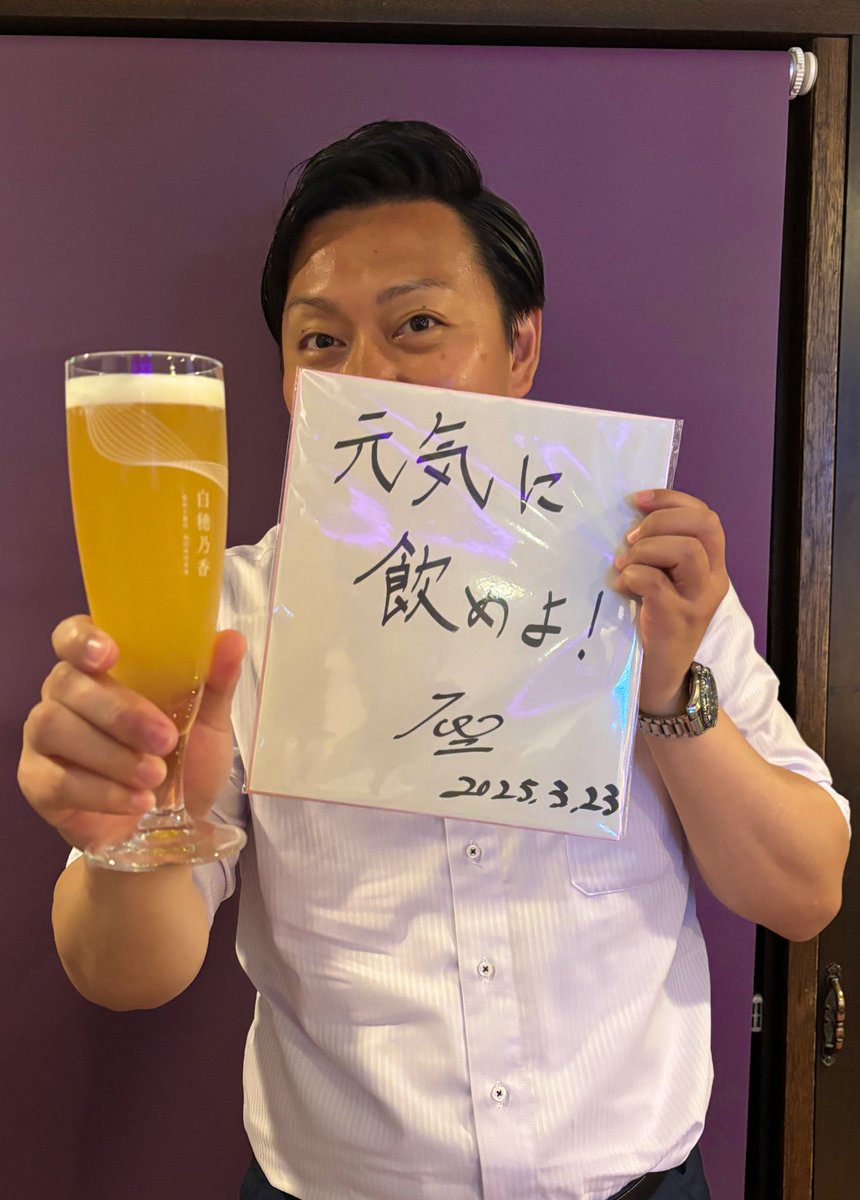 白穂乃香
元気に
飲めよ!
2025.3.23